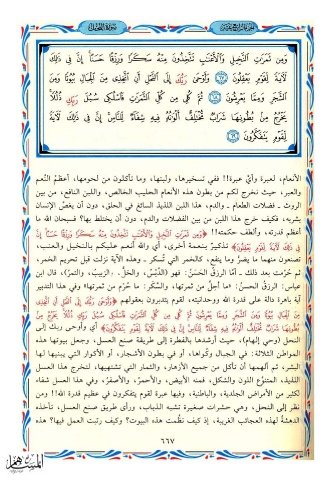 الجزء الرابع عشر
سورة النحل
وَمِن ثَمَرَٰتِ ٱلنَّخِيلِ وَٱلْأَعْنَٰبِ تَتَّخِذُونَ مِنْهُ سَكَرًا وَرِزْقًا حَسَنًا إِنَّ فِى ذَٰلِكَ
لَءَايَةً لِّقَوْمٍ يَعْقِلُونَ ٦٧ وَأَوْحَىٰ رَبُّكَ إِلَى ٱلنَّحْلِ أَنِ ٱتَّخِذِى مِنَ ٱلْجِبَالِ بُيُوتًا وَمِنَ
ٱلشَّجَرِ وَمِمَّا يَعْرِشُونَ ٦٨ ثُمَّ كُلِى مِن كُلِّ ٱلثَّمَرَٰتِ فَٱسْلُكِى سُبُلَ رَبِّكِ ذُلُلًا
يَخْرُجُ مِنۢ بُطُونِهَا شَرَابٌ مُّخْتَلِفٌ أَلْوَٰنُهُۥ فِيهِ شِفَآءٌ لِّلنَّاسِ إِنَّ فِى ذَٰلِكَ لَءَايَةً
لِّقَوْمٍ يَتَفَكَّرُونَ ٦٩
الأنعام، لعبرة وأيَّ عبرة!! ففي تسخيرها، ولبنها، وما تأكلون من لحومها، أعظمُ النِّعم
والعبر، حيث نخرج لكم من بطون هذه الأنعام الحليب الخالص، واللبن النافع، من بين
الروث ـ فضلات الطعام ـ والدم، هذا اللبن اللذيذ السائغ في الحلق، دون أن يغصَّ الإنسان
بشربه، فكيف خرج هذا اللبن من بين الفضلات والدم، دون أن يختلط بها؟ فسبحان الله ما
أعظم قدرته، وألطف حكمته!! ﴿وَمِن ثَمَرَاتِ النَّخِيلِ وَالْأَعْنَابِ تَتَّخِذُونَ مِنْهُ سَكَرًا وَرِزْقًا حَسَنًا إِنَّ
فِي ذَلِكَ لَآيَةً لِّقَوْمٍ يَعْقِلُونَ﴾ تذكيرٌ بنعمة أخرى، أي والله أنعم عليكم بالنخيل والعنب،
تصنعون منهما ما يضرُّ وما ينفع، كالخمر التي تُسكر ـ وهذه الآية نزلت قبل تحريم الخمر،
ثم حُرِّمت بعد ذلك ـ أمَّا الرزقُ الحَسَنُ: فهو (الدِّبْسُ، والخلُّ، والزبيبُ، والتمرُ)، قال ابن
عباس: الرزقُ الحسنُ: «ما أُحلَّ من ثمرتها، والسَّكَر: ما حُرِّم من ثمرتها» وفي هذا التدبير
آية باهرة دالة على قدرة الله ووحدانيته، لقوم يتدبرون بعقولهم ﴿وَأَوْحَى رَبُّكَ إِلَى النَّحْلِ أَنِ اتَّخِذِي
مِنَ الْجِبَالِ بُيُوتًا وَمِنَ الشَّجَرِ وَمِمَّا يَعْرِشُونَ ثُمَّ كُلِي مِن كُلِّ الثَّمَرَاتِ فَاسْلُكِي سُبُلَ رَبِّكِ ذُلُلًا يَخْرُجُ مِنْ
بُطُونِهَا شَرَابٌ مُّخْتَلِفٌ أَلْوَانُهُ فِيهِ شِفَاءٌ لِلنَّاسِ إِنَّ فِي ذَلِكَ لَآيَةً لِّقَوْمٍ يَتَفَكَّرُونَ﴾ أي وأوحى ربك إلى
النحل (وحي إلهام)، حيث أرشدها بالفطرة إلى طريقة صنع العسل، وجعل بيوتها هذه
المواطن الثلاثة: في الجبال وكُواها، أو في بطون الأشجار، أو الأكوار التي يبنيها لها
البشر، ثم ألهمها أن تأكل من جميع الأزهار، والثمار التي تشتهيها، لتخرج هذا العسل
اللذيذ، المتنوِّع اللون والشكل، فمنه الأبيض، والأحمرُ، والأصفرُ، وفي هذا العسل شفاء
لكثير من الأمراض الجلدية، والباطنية، وفيها عبرة لقوم يتفكرون في عظيم قدرة الله!! ومن
نظر إلى النحل، وهي حشرات صغيرة تشبه الذباب، ورأى طريق صنع العسل، تأخذه
الدهشةُ لهذه العجائب الغريبة، إذ كيف نظَّمت هذه البيوت؟ وكيف رتبت العمل فيها؟ هذه
٦٦٧